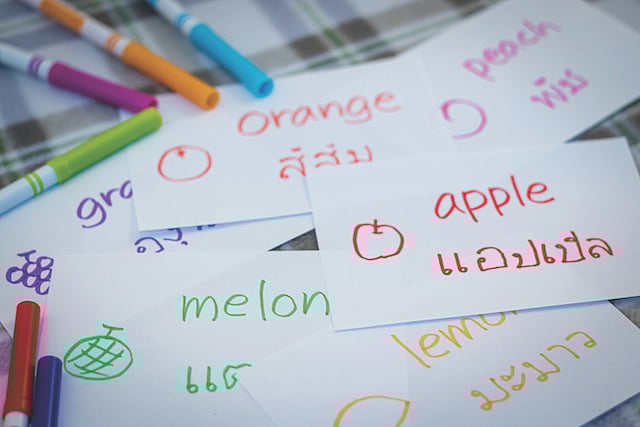 peach
พีช
orange
สีส้ม
gra
องุ
apple
แอปเปิล
melon
แต
lemon
มะนาว